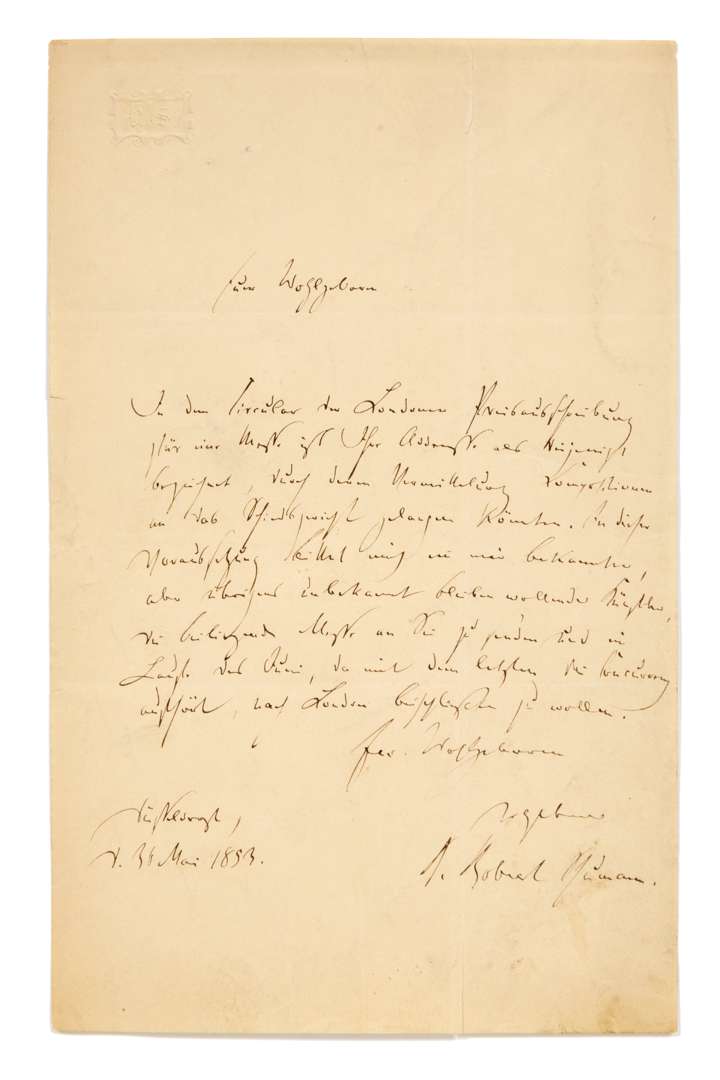 Euer Wohlgeboren
In dem Circular der Londoner Preisausschreibung
für eine Messe ist Ihre Addresse als diejenige
bezeichnet, durch deren Vermittelung Compositionen
an das Schiedsgericht gelangen könnten. In dieser
Voraussetzung bittet mich ein mir bekannter,
aber übrigens unbekannt bleiben wollender Künstler,
die beiliegende Messe an Sie zu senden und im
Laufe des Juni, da mit dem letzten die Concurrenz
aufhört, nach London befördern zu wollen.
Ew. Wohlgeboren
Düsseldorf,
ergebener
d. Mai 1853.
Dr. Robert Schumann.